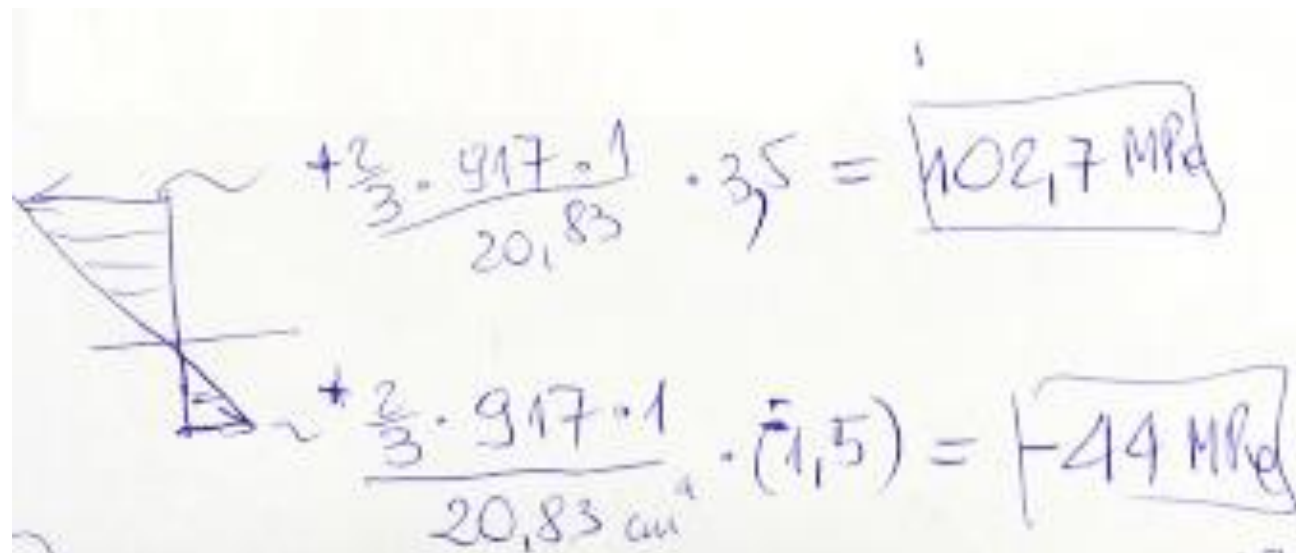 + 2/3 · 917 · 1 / 20,83 · 3,5 = 102,7 MPa
+ 2/3 · 917 · 1 / 20,83 cm⁴ · (-1,5) = -44 MPa